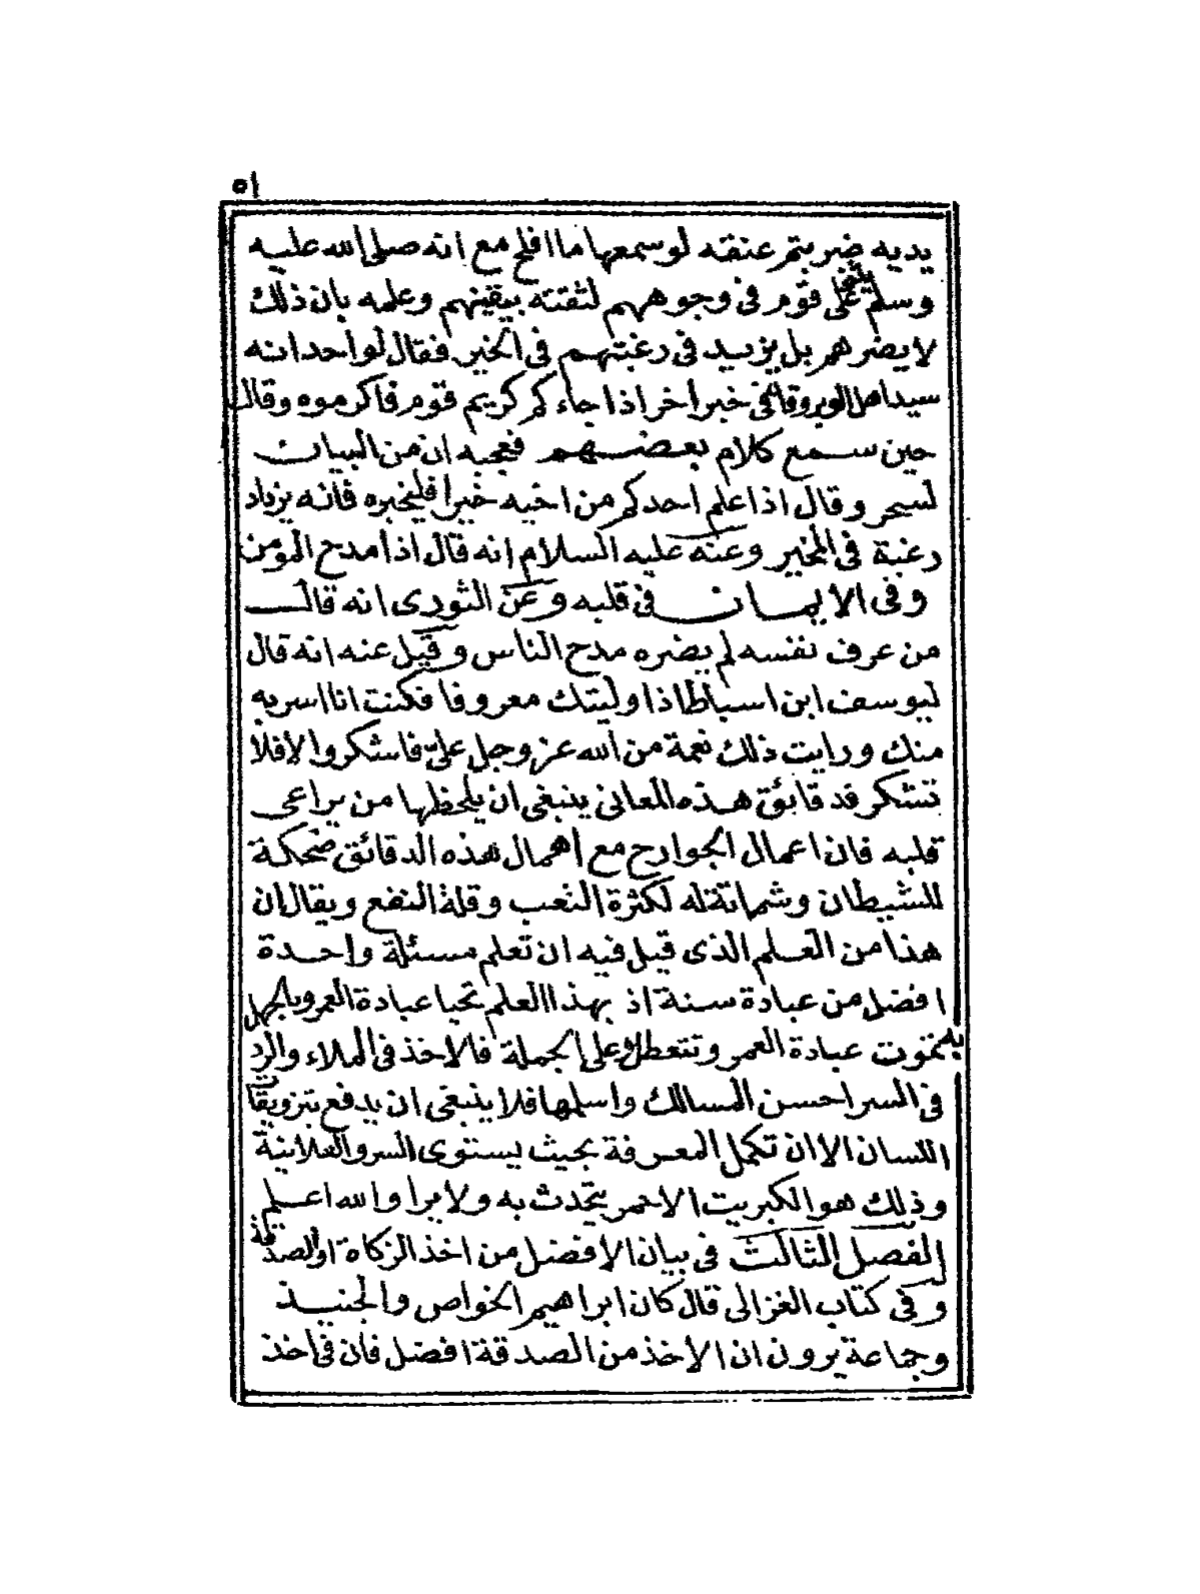 ٥١
يديه ضربتم عنقه لو سمعها ما افلح مع انه صلى الله عليه
وسلم يثنى على قوم فى وجوههم لثقته بيقينهم وعلمه بان ذلك
لا يضرهم بل يزيد فى رغبتهم فى الخير فقال لواحد انه
سيد اهل الوبر وقال فى خبر اخر اذا جاءكم كريم قوم فاكرموه وقال
حين سمع كلام بعضهم فعجبه ان من البيان
لسحر وقال اذا علم احدكم من اخيه خيرا فليخبره فانه يزداد
رغبة فى الخير وعنه عليه السلام انه قال اذا مدح المؤمن
وفى الايمان فى قلبه وعن الثورى انه قال
من عرف نفسه لم يضره مدح الناس وقيل عنه انه قال
ليوسف ابن اسباط اذا وليتك معروفا فكنت انا اسر به
منك ورايت ذلك نعمة من الله عز وجل علىّ فاشكر والا فلا
تشكر فدقائق هذه المعانى ينبغى ان يلحظها من يراعى
قلبه فان اعمال الجوارح مع اهمال هذه الدقائق ضحكة
للشيطان وشماتة له لكثرة التعب وقلة النفع ويقال ان
هذا من العلم الذى قيل فيه ان تعلم مسئلة واحدة
افضل من عبادة سنة اذ بهذا العلم تحيا عبادة العمر وبالجهل
به تموت عبادة العمر وتتعطل وعلى الجملة فالاخذ فى الملاء والرد
فى السر احسن المسالك واسلمها فلا ينبغى ان يدفع بتزويقات
اللسان الا ان تكمل المعرفة بحيث يستوى السر والعلانية
وذلك هو الكبريت الاحمر يتحدث به ولا يرا والله اعلم
الفصل الثالث فى بيان الافضل من اخذ الزكاة او الصدقة
وفى كتاب الغزالى قال كان ابراهيم الخواص والجنيد
وجماعة يرون ان الاخذ من الصدقة افضل فان فى اخذ